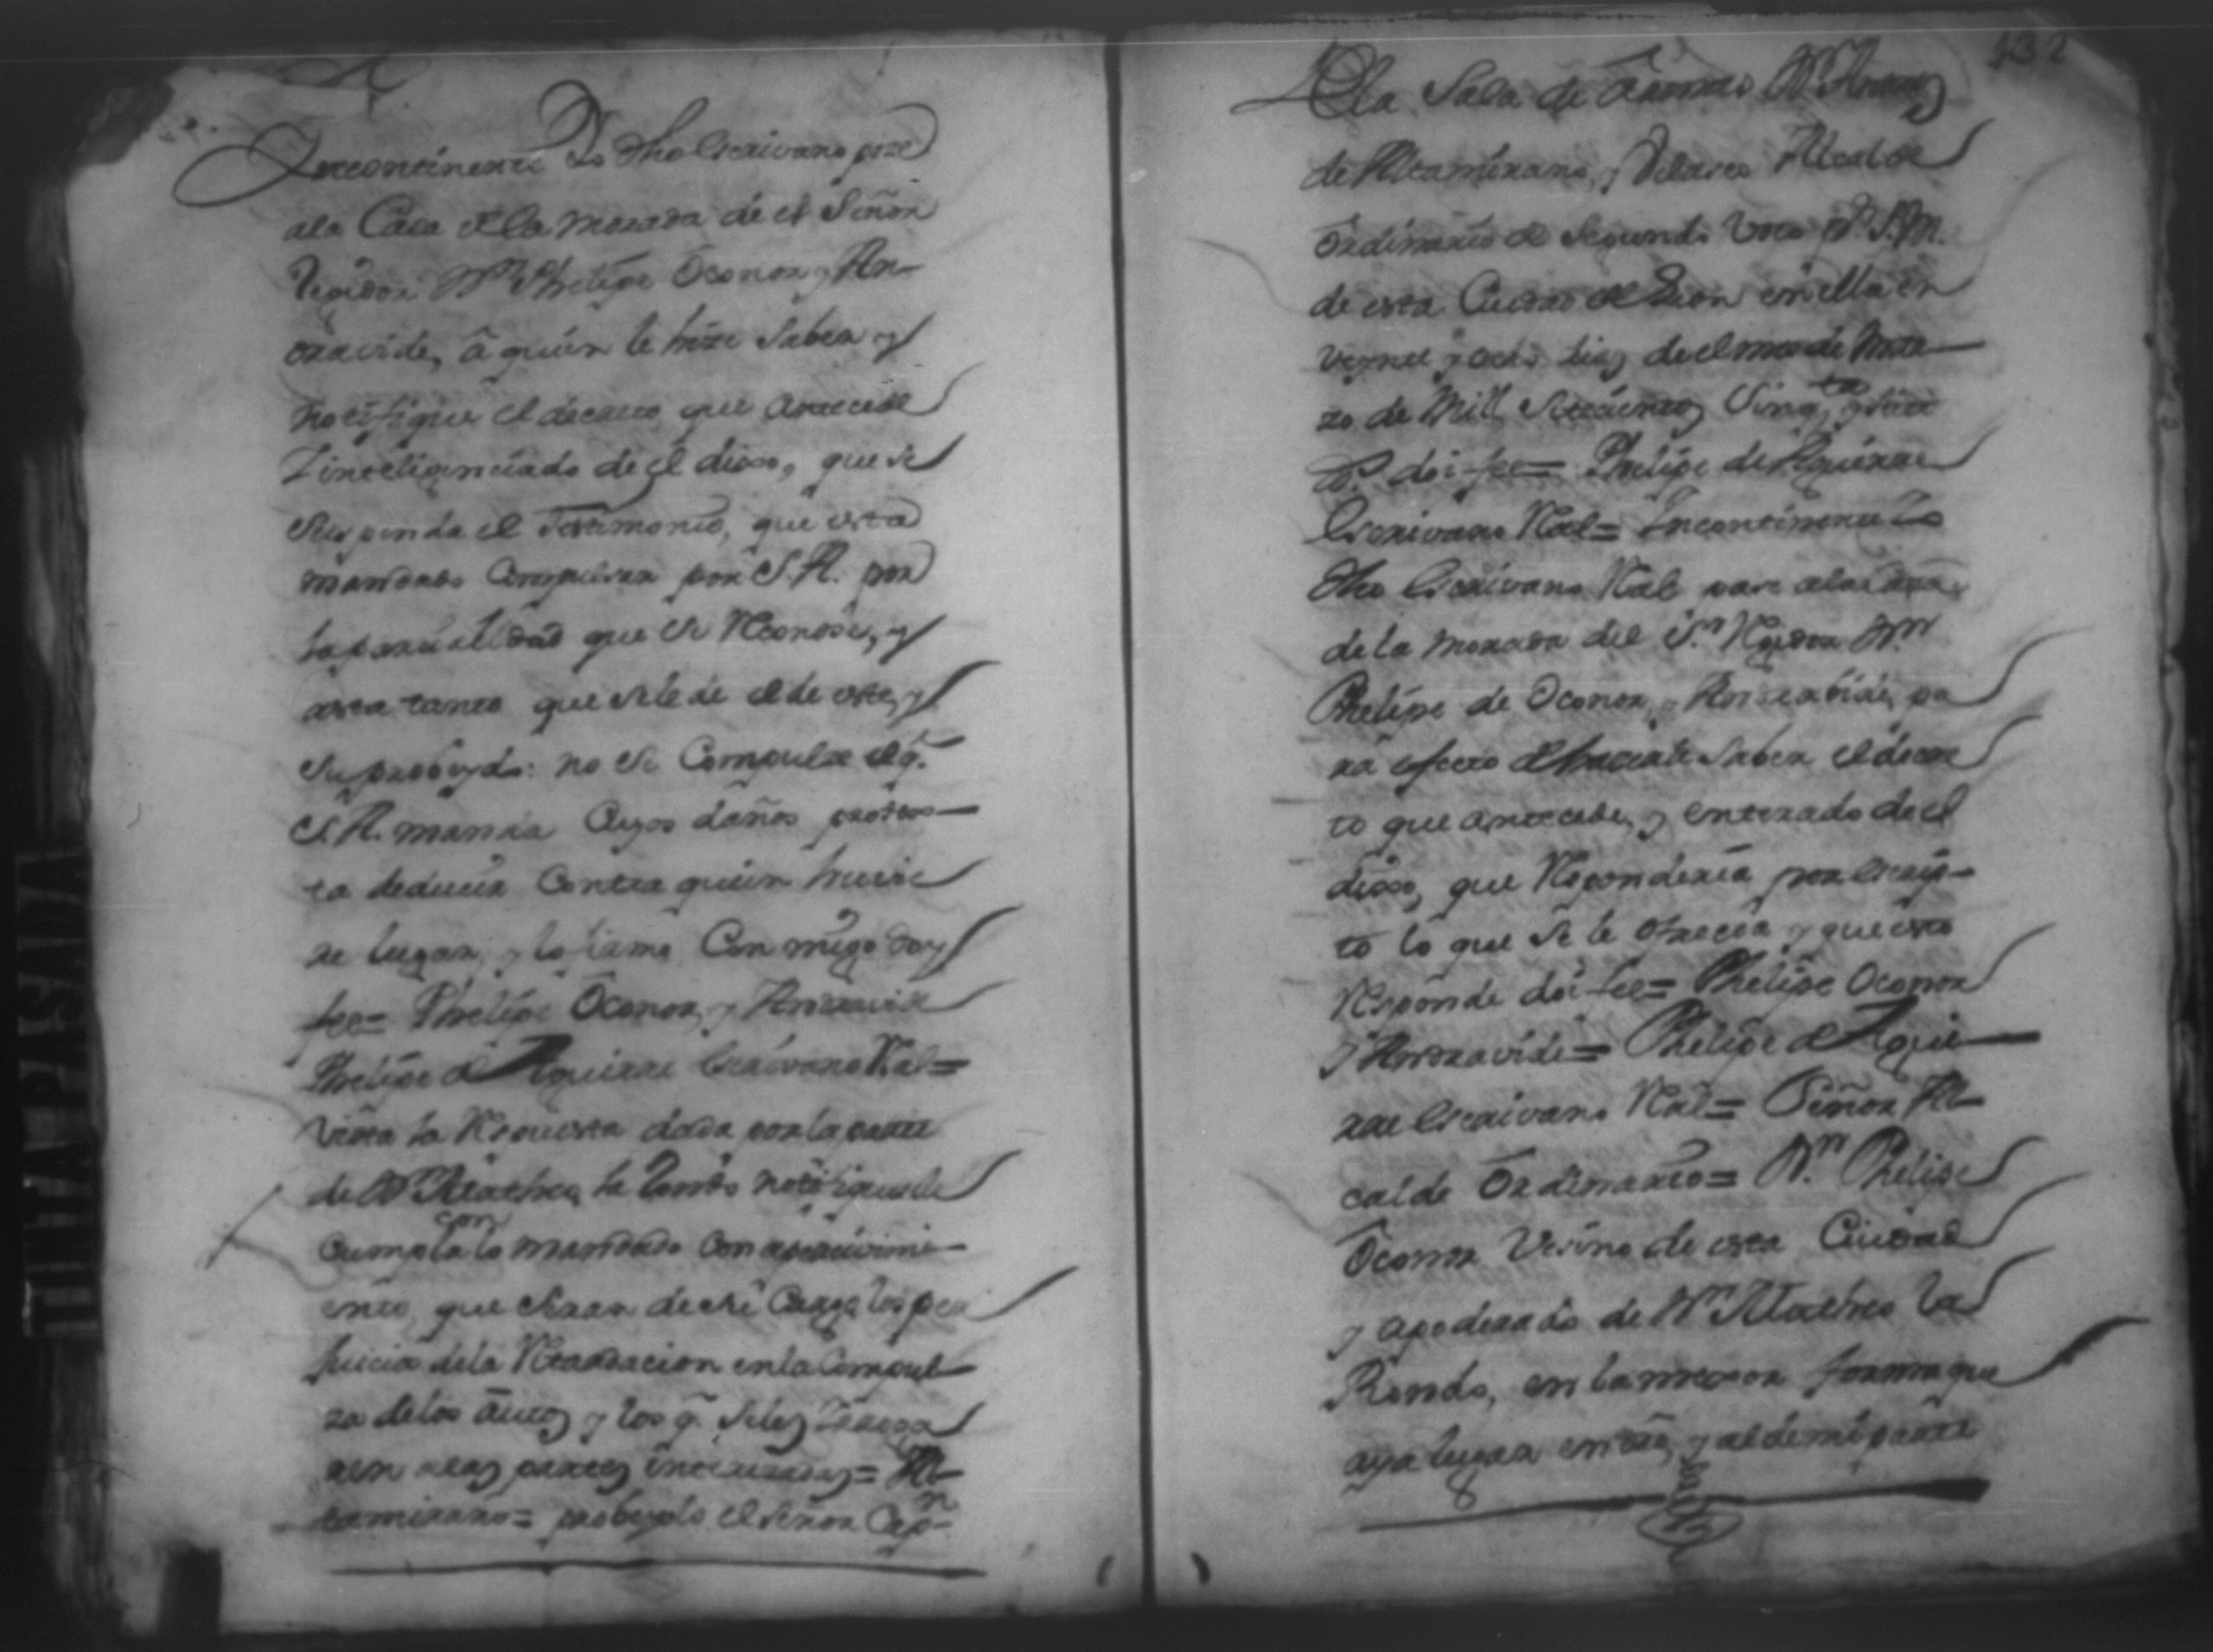 Incontinenti Yo dho Escrivano pase
ala Casa de la morada de el Señor
Regidor Dn Phelipe Oconor y An-
dravide, â quien le hize Saber y
notifique el decreto que antecede
Yinteligenciado de êl dixo, que se
Suspenda el Testimonio, que esta
mandado Compulsar por S.A. por
la parcialidad que se Reconose, y
asta tanto que sele de el de este, y
Su probeydo: no se Compulse el q.
S.A. manda Cuyos daños protes-
ta deducir Contra quien huvie
re lugar, y lo firmo Conmigo doy
fee= Phelipe Oconor, y Andravide
Phelipe de Aguirre Escrivano Real=
Vista la Respuesta dada por la parte
de Dn Matheo la Rondo notifiquesele
Cumpla con lo mandado Con apercivimi-
ento, que seran de su Cargo los per
juicios dela Retardacion enla Compul
sa delos âutos y los q. seles
ren alas partes interezadas= Al-
tamirano= probeyolo el Señor Capn
De la Sala de Armas Dn
de Altamirano, y Velasco Alcalde
Ordinario de Segundo Voto pr S.M.
de esta Ciudad de Leon en ella en
veynte y ocho dias de el mes de Mar-
zo de Mill Setecientos Cinqta y siete
as. doi fee= Phelipe de Aguirre
Escrivano Real= Incontinenti Yo
dho Escrivano Real pase ala Casa
dela morada del Sr Regidor Dn
Phelipe de Oconor, y Andravide, pa
ra efecto de hacerle Saber el decre
to que antecede, y enterado de el
dixo, que Responderia por Escrip-
to lo que se le ofrecia y que esto
Responde doi fee= Phelipe Oconor
y Andravide= Phelipe de Agui-
rre Escrivano Real= Señor Al-
calde Ordinario= Dn Phelipe
Oconor Vesino de esta Ciudad
y apoderado de Dn Matheo la
Rondo, en la mexor forma que
aya lugar en dro, y al de mi parte